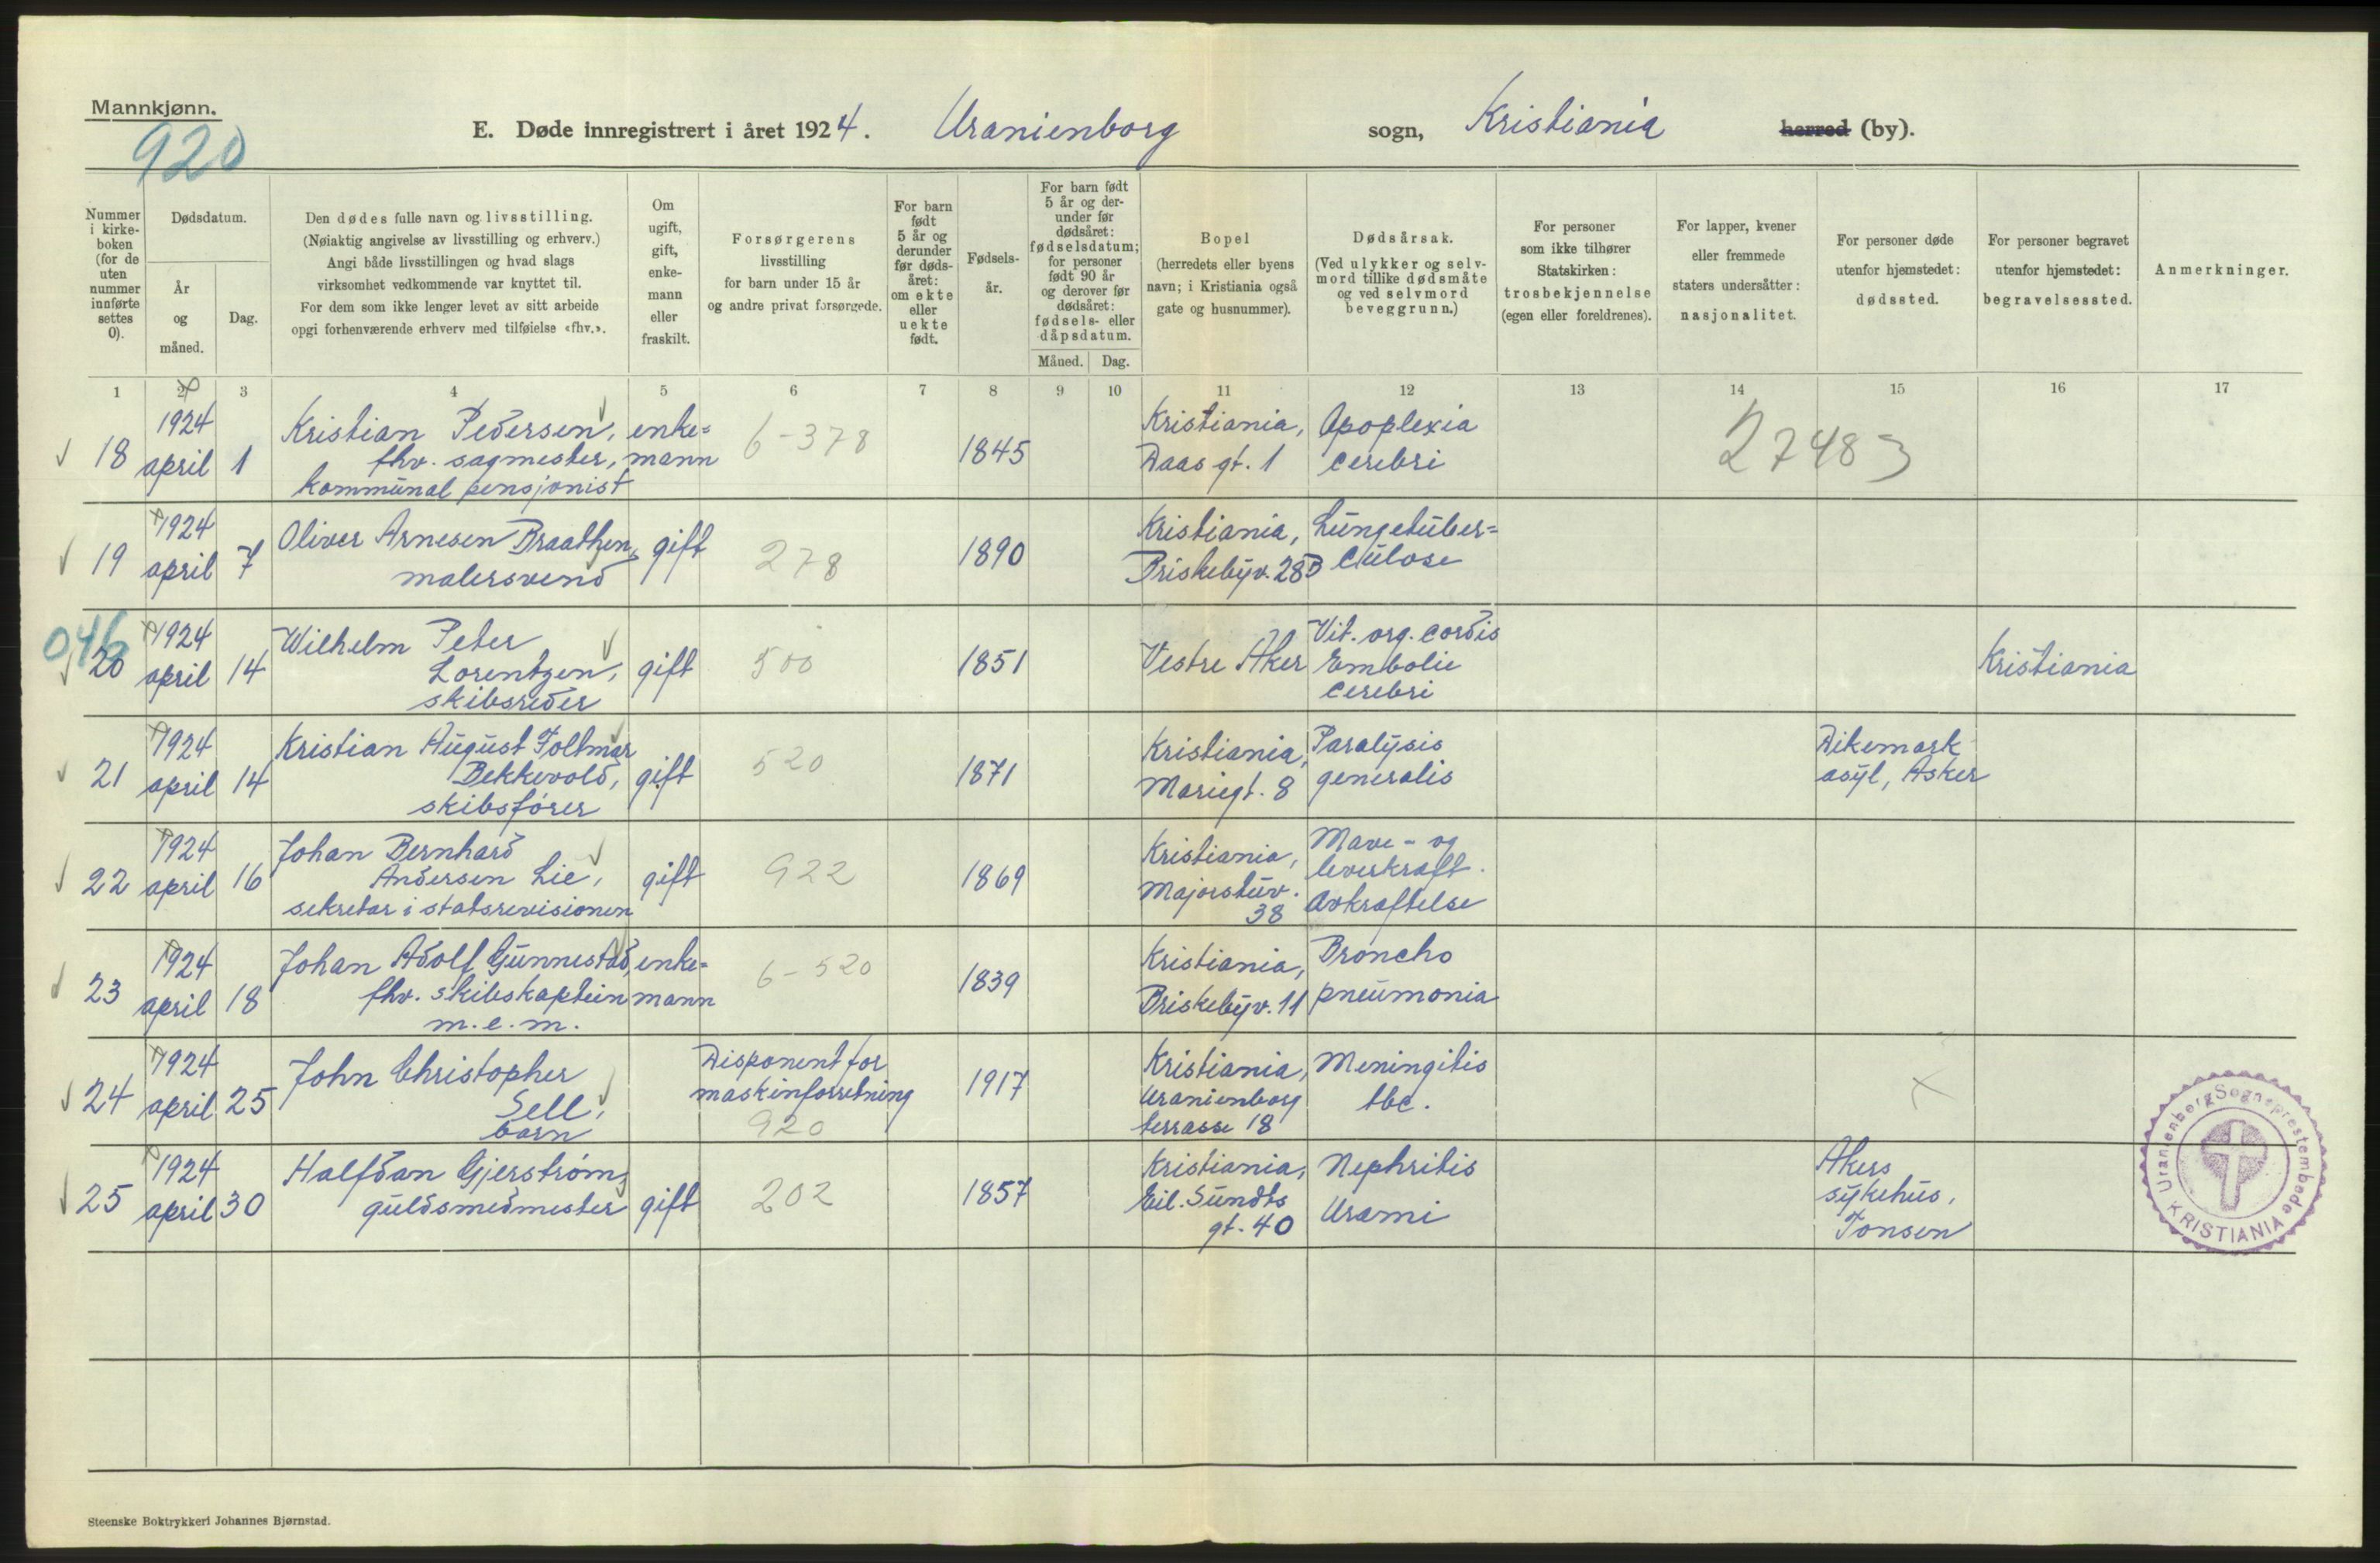 Mannkjønn.
920
E. Døde innregistrert i året 1924. Uranienborg sogn, Kristiania herred (by).
Nummer i kirke-boken (for de uten nummer innførte settes 0).
Dødsdatum.
År og måned.
Dag.
Den dødes fulle navn og livsstilling.
(Nøiaktig angivelse av livsstilling og erhverv.)
Angi både livsstillingen og hvad slags
virksomhet vedkommende var knyttet til.
For dem som ikke lenger levet av sitt arbeide
opgi forhenværende erhverv med tilføielse «fhv.».
Om ugift, gift, enke-mann eller fraskilt.
Forsørgerens
livsstilling
for barn under 15 år
og andre privat forsørgede.
For barn født 5 år og derunder før døds-året: om ekte eller uekte født.
Fødsels-år.
For barn født 5 år og der-under før dødsåret: fødselsdatum; for personer født 90 år og derover før dødsåret: fødsels- eller dåpsdatum.
Måned. Dag.
Bopel
(herredets eller byens
navn; i Kristiania også
gate og husnummer).
Dødsårsak.
(Ved ulykker og selv-
mord tillike dødsmåte
og ved selvmord
beveggrunn.)
For personer
som ikke tilhører
Statskirken:
trosbekjennelse
(egen eller foreldrenes).
For lapper, kvener
eller fremmede
staters undersåtter:
nasjonalitet.
For personer døde
utenfor hjemstedet:
dødssted.
For personer begravet
utenfor hjemstedet:
begravelsessted.
Anmerkninger.
1 2 3 4 5 6 7 8 9 10 11 12 13 14 15 16 17
18 1924 april 1 Kristian Pedersen, fhv. sagmester, kommunal pensjonist enke=mann 6-378 1845 Kristiania, Daasgt. 1 Apoplexia cerebri 27483
19 1924 april 7 Oliver Arnesen Braathen, malersvend gift 278 1890 Kristiania, Briskebyv. 28B Lungetuber=culose
046
20 1924 april 14 Wilhelm Peter Lorentzen, skibsreder gift 500 1851 Vestre Aker Vit. org. cordis Embolie cerebri Kristiania
21 1924 april 14 Kristian August Foltmar Bekkevold, skibsfører gift 520 1871 Kristiania, Mariegt. 8 Paralysis generalis Dikemark asyl, Asker
22 1924 april 16 Johan Bernhard Andersen Lie, sekretær i statsrevisionen gift 922 1869 Kristiania, Majorstuv. 38 Mave- og leverkræft. Avkræftelse
23 1924 april 18 Johan Adolf Gunnestad, fhv. skibskaptein m.e.m. enke=mann 6-520 1839 Kristiania, Briskebyv. 11 Broncho pneumonia
24 1924 april 25 John Christopher Sell, barn Disponent for maskinforretning 920 1917 Kristiania, Uranienborg terrasse 18 Meningitis tbc.
25 1924 april 30 Halfdan Gjerstrøm, guldsmedmester gift 202 1857 Kristiania, Eil. Sundts gt. 40 Nephritis Uræmi Akers sykehus, Tonsen
Uranienborg Sogneprestembede
KRISTIANIA
Steenske Boktrykkeri Johannes Bjørnstad.